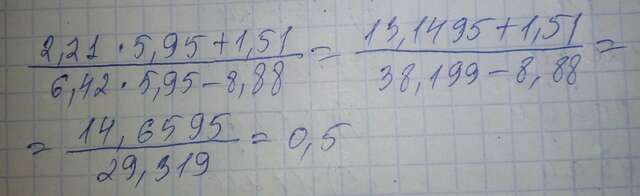 (2,21 · 5,95 + 1,51) / (6,42 · 5,95 - 8,88) = (13,1495 + 1,51) / (38,199 - 8,88) =
= 14,6595 / 29,319 = 0,5